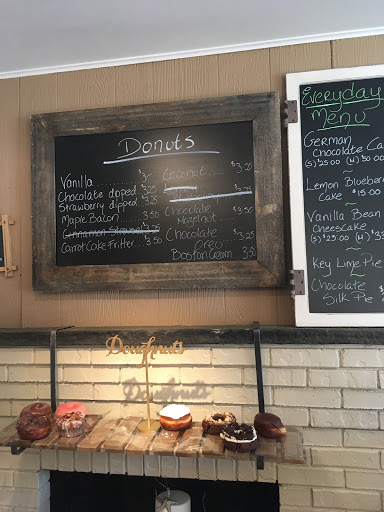 Donuts
Vanilla ........ $3
Chocolate dipped $3.25
Strawberry dipped $3.25
Maple Bacon ...... 3.50
Cinnamon
Carrot Cake Fritter... 3.50
Coconut..... $3.25
Chocolate Hazelnut .... $3.50
Chocolate
Oreo 3.25
Boston Cream 3.50
Everyday
Menu
German
Chocolate Ca
~
Lemon Blueber
Cake $15.00
~
Vanilla Bean
Cheesecake
~
Key Lime Pie
~
Chocolate
Silk Pie
Doughnuts